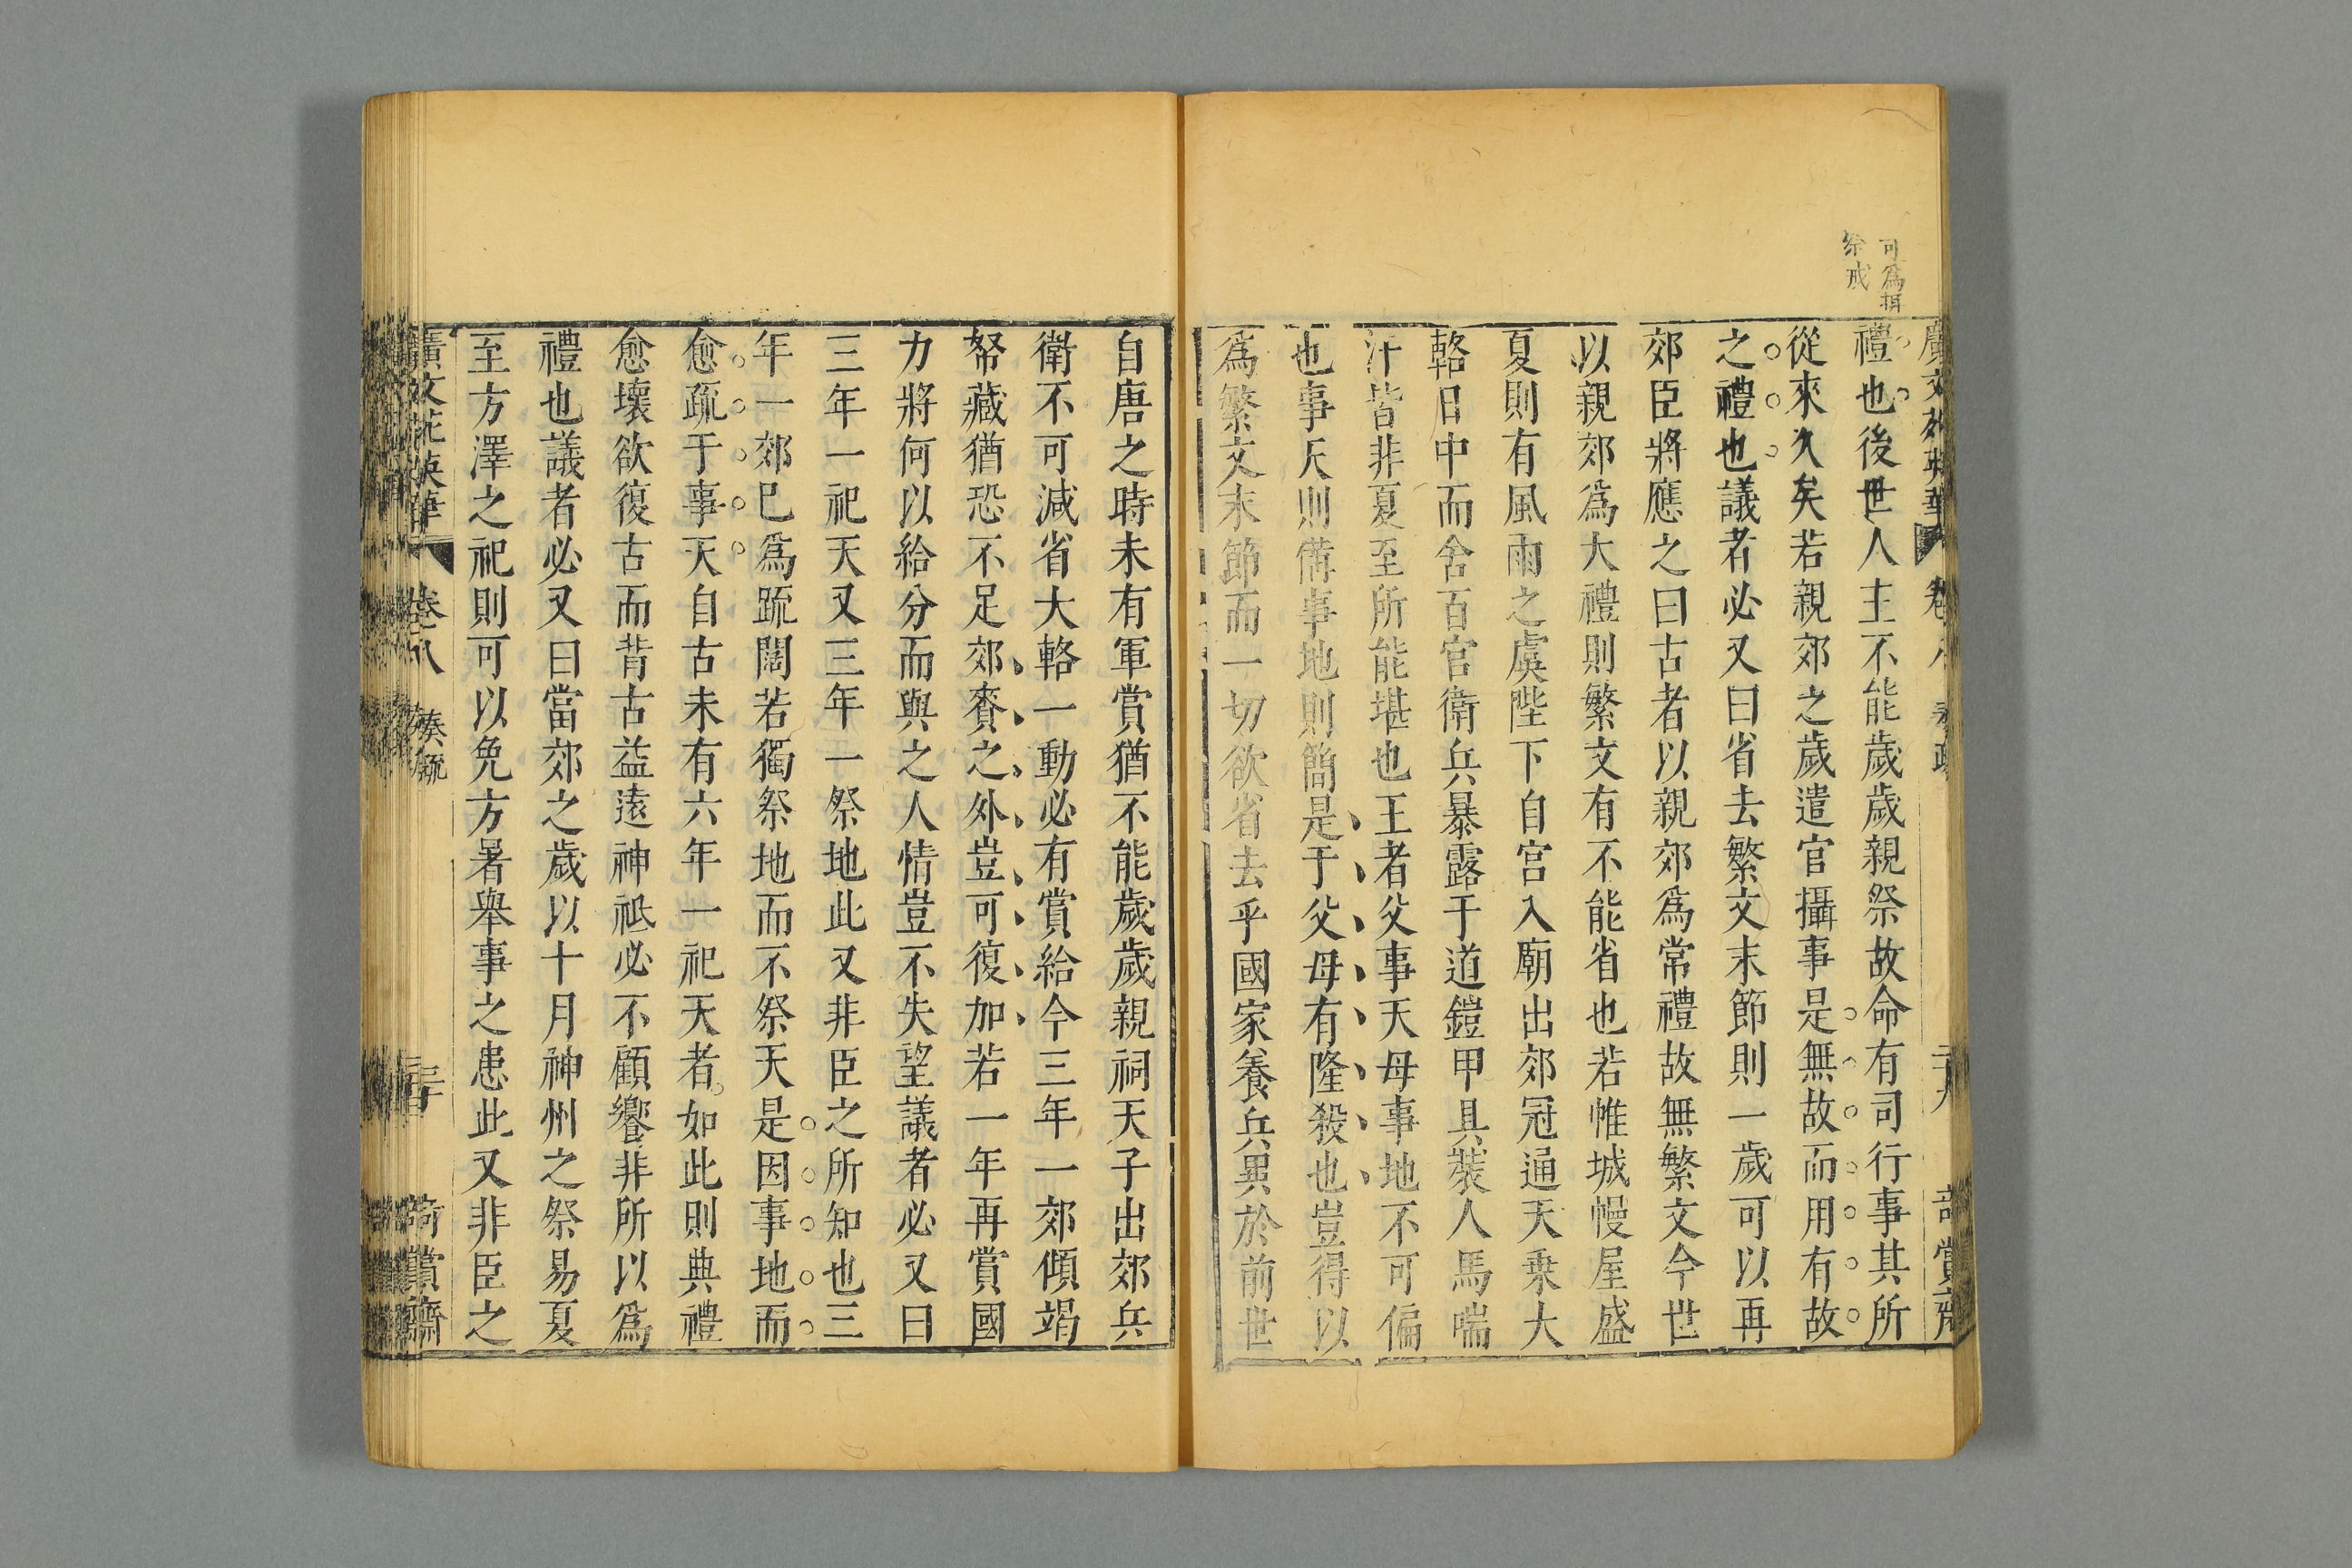 可爲摂
祭戒
廣文苑英華 卷八 奏疏 二十九 奇賞齋
禮也後世人主不能歲歲親祭故命有司行事其所
從來久矣若親郊之歲遣官攝事是無故而用有故
之禮也議者必又曰省去繁文末節則一歲可以再
郊臣將應之曰古者以親郊爲常禮故無繁文今世
以親郊爲大禮則繁文有不能省也若帷城幔屋盛
夏則有風雨之虞陛下自宮入廟出郊冠通天乘大
輅日中而舍百官衛兵暴露于道鎧甲具裝人馬喘
汗皆非夏至所能堪也王者父事天母事地不可偏
也事天則備事地則簡是于父母有隆殺也豈得以
爲繁文末節而一切欲省去乎國家養兵異於前世
自唐之時未有軍賞猶不能歲歲親祠天子出郊兵
衛不可減省大輅一動必有賞給今三年一郊傾竭
帑藏猶恐不足郊賚之外豈可復加若一年再賞國
力將何以給分而與之人情豈不失望議者必又曰
三年一祀天又三年一祭地此又非臣之所知也三
年一郊已爲疏闊若獨祭地而不祭天是因事地而
愈疏于事天自古未有六年一祀天者如此則典禮
愈壞欲復古而背古益遠神祗必不顧饗非所以爲
禮也議者必又曰當郊之歲以十月神州之祭易夏
至方澤之祀則可以免方暑舉事之患此又非臣之
廣文苑英華 卷八 奏疏 三十 奇賞齋